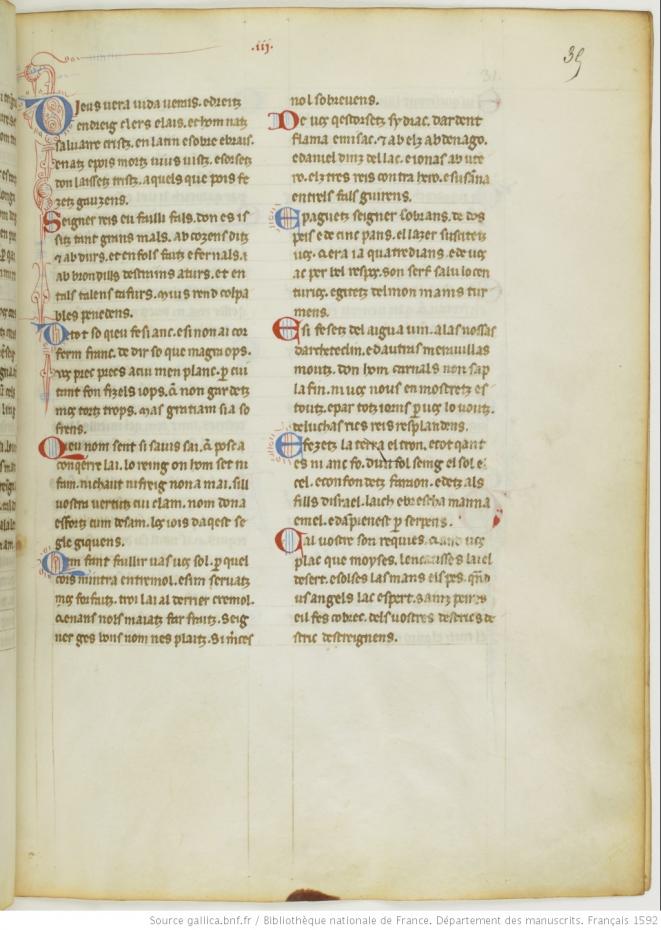 .iij.
39
31.
Dieus uera uida uerais. e dreitz
en dreig clers e lais. et hom natz
saluaire cristz. en latin e sobre ebrais.
e natz e pois mortz uius uistz. e sorsetz
don laissetz tristz. aquels que pois fe
zetz gauzens.
Seigner reis eu failli fals. don es is
sitz tant grans mals. ab cozens ditz
& ab durs. et en fols faitz efernals. i
ab brondills destruis aturs. et en
tals talens tafurs. mus rend colpa
bles penedens.
De tot so qeu fes anc. e si non ai cor
ferm franc. de dir so que magra ops.
prec precs a cui men planc. p cui
tant fon fizels iops. non gardetz
tortz trops. mas gratiam si a so
frens.
Queu nom sent si sauis sai. posca
conqerre lai. lo reing on hom set ni
fam. ni chaut ni freig non a mai. sill
uostra uertutz cui clam. nom dona
esfortz cum desam. los iois daqest se
gle giquens.
tant faillir uas sol. p quel
cors mintra en tremol. e sim seruatz
forfaitz. troi lai al derrier cremol.
enans nols maiatz far fraitz. Seig
ner ges bons nom nes plaitz. si merces
nol sobreuens.
De uos qestorsetz sydrac. dardent
flama e misac. & ab elz abdenago.
e daniel dinz del lac. e ionas ab ute
ro. elz tres reis contra hero. e susana
entrels fals guirens.
E paguetz seigner sobrans. de dos
peis e de cinc pans. el lazer suscitetz
uos. era ia quatredians. e de
per bel respos. son serf salu lo cen
turios. e gitetz del mon mams tur
mens.
E si fesetz del aigua uin. a las nossas
darcheteclin. e dautras merauillas
moutz. don hom carnals non sap
la fin. nous en mostretz es
toutz. e par totz ioms p lo uoutz.
de luchas rics reis resplandens.
E fezetz la terra el tron. e tot qant
es ni anc fo. dun sol seing el sol e.
cel. e confondetz faraon. e detz als
fills disrael. laich e brescha manna
e mel. e dapnest p serpens.
Cal uostre son requies. cant uos
plac que moyses. lencausses la el
desert. e solses las mans els pes.
us angels lac espert. sanz peires
eil fes cobrec. dels uostres deserics de
stric destreignens.
Source gallica.bnf.fr / Bibliothèque nationale de France. Département des manuscrits. Français 1592